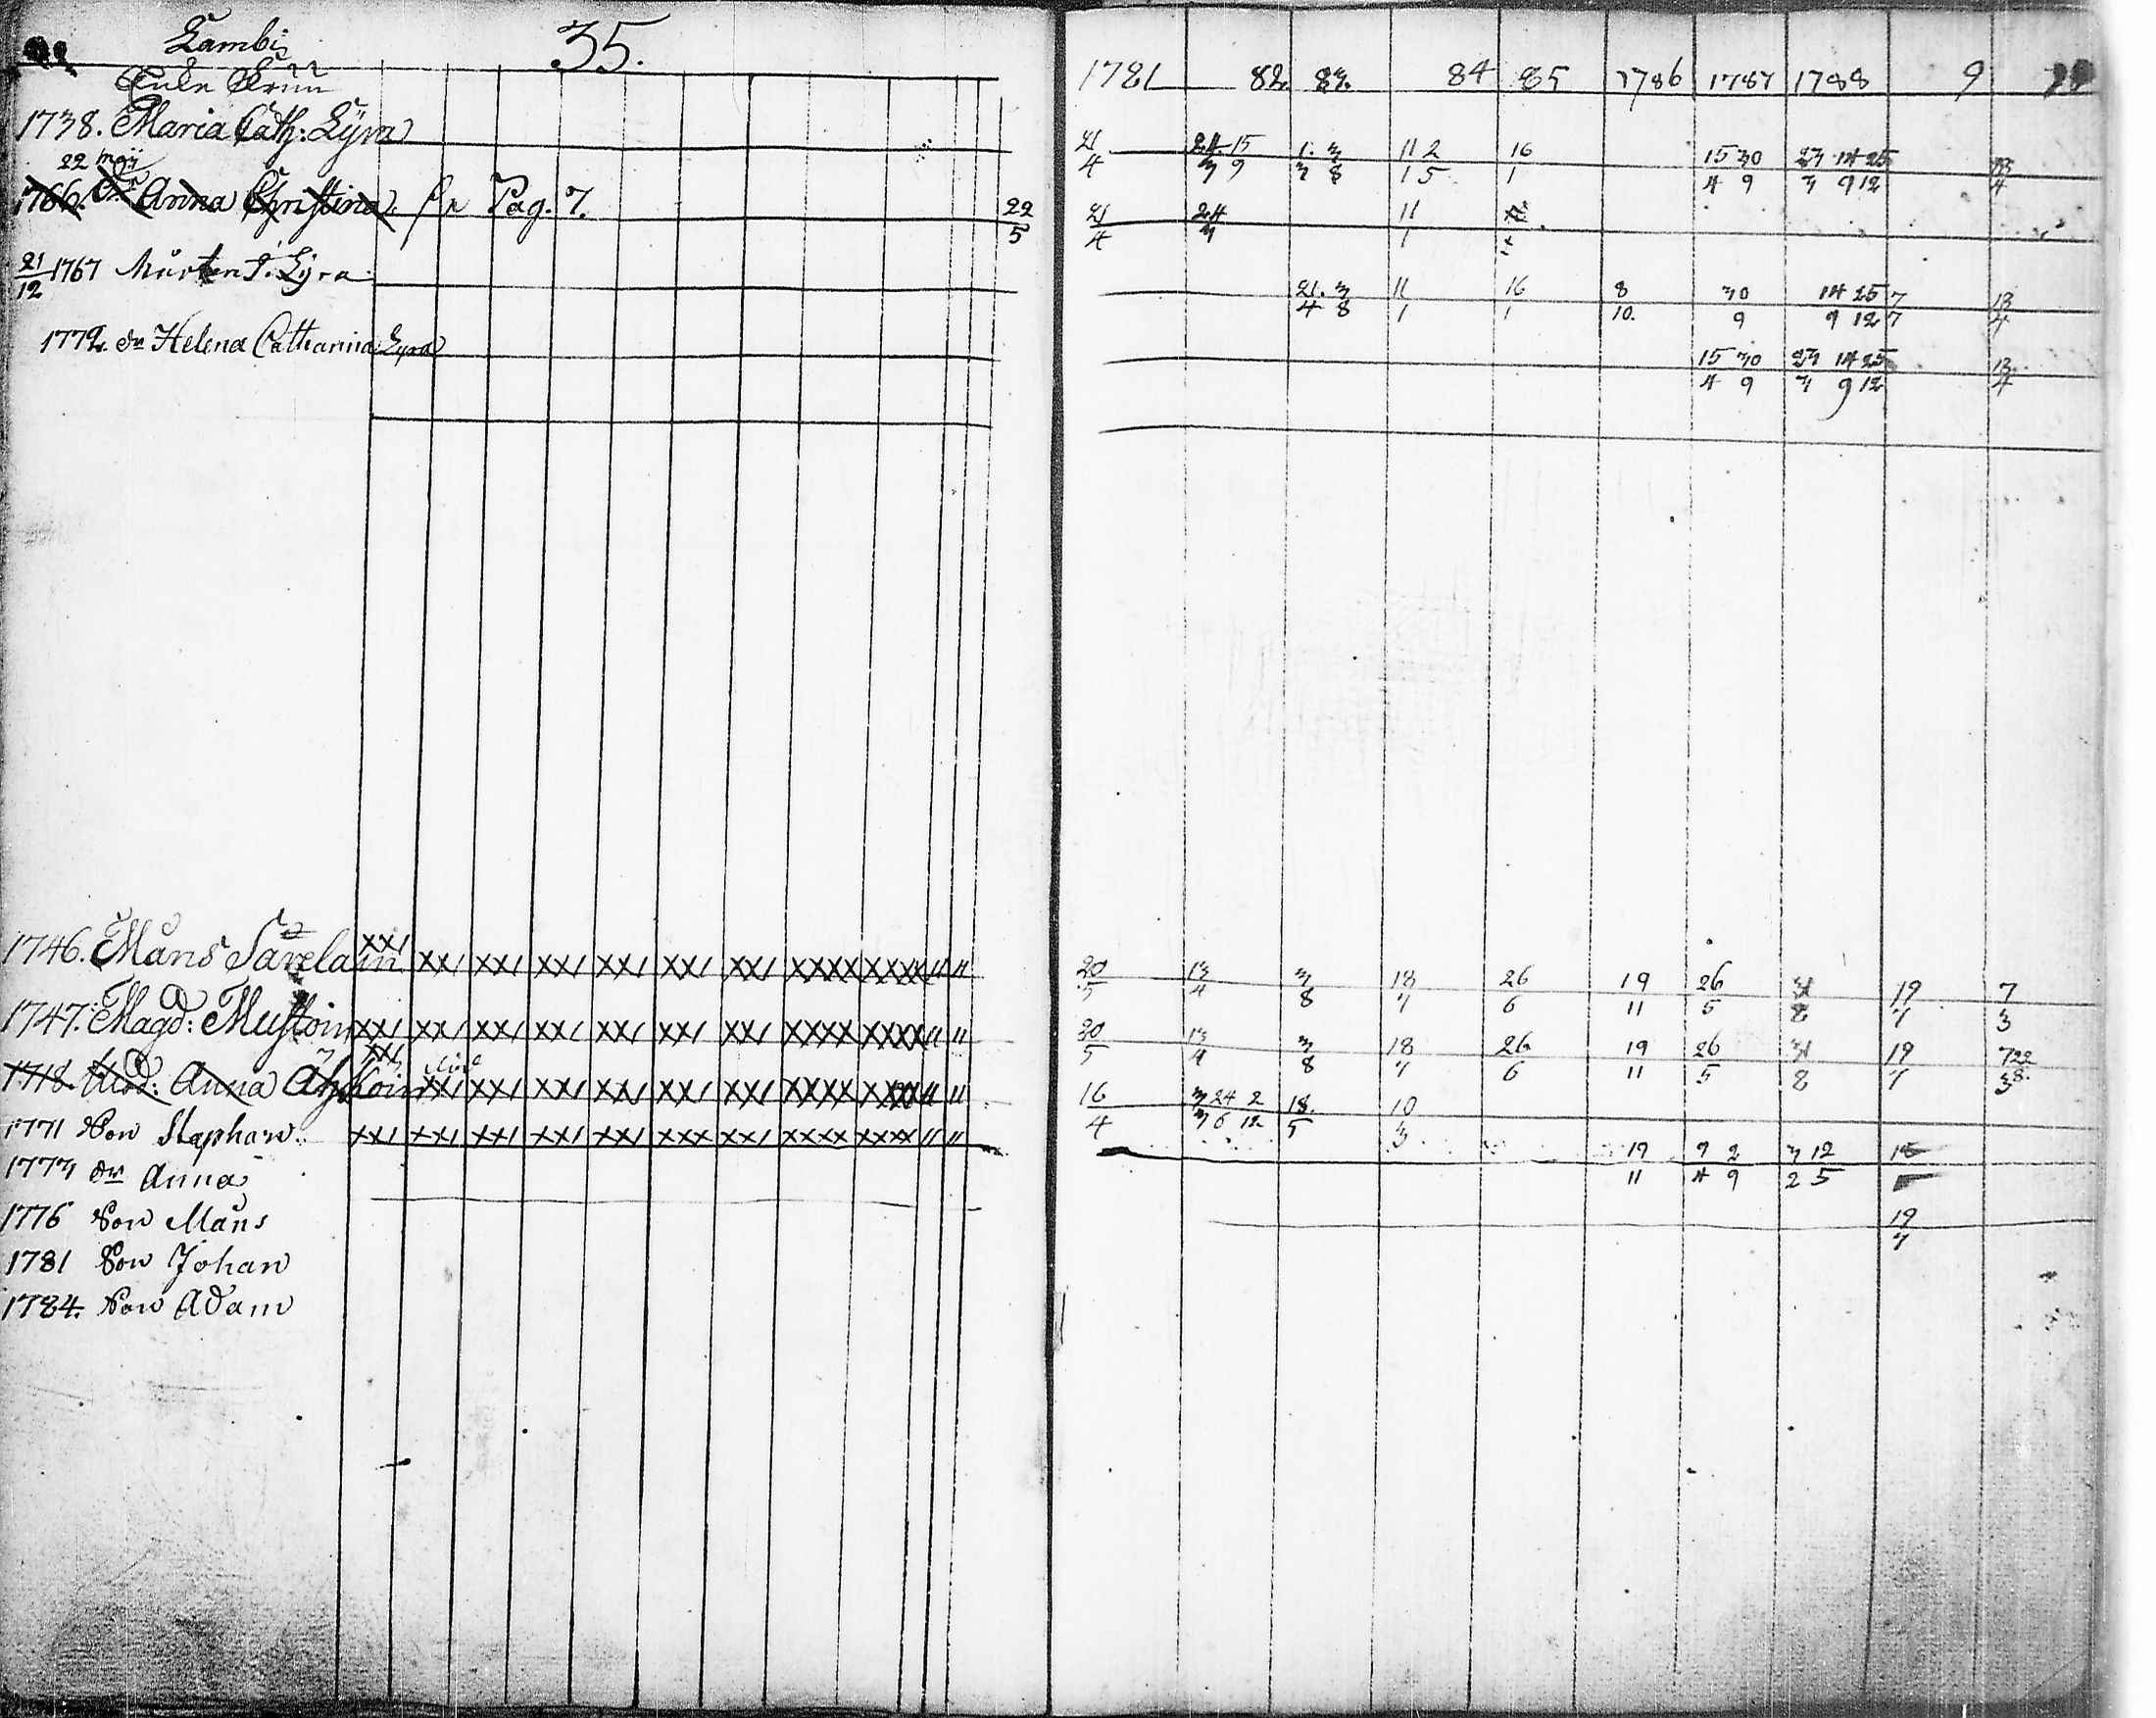 Lambi
35.
Enke Frun
1738. Maria Cath: Lÿra
22 maÿ
1766. Dr Anna Christina. fr Pag. 7. 22/5
21/12 1767 Mårten J. Lÿra
1772. dr Helena Catharina Lyra
1746. Måns Särelain XXI XXI XXI XXI XXI XXI XXI XXXX XXXX 11 11
1747. Magd: Mustoin XXI XXI XXI XXI XXI XXI XXI XXXX XXXX 11 11
1718. Mod: Anna XXI XXI XXI XXI XXI XXI XXXX 11 11
1771 Son Staphan. XXI XXI XXI XXI XXI XXX XXI XXXX XXXX 11 11
1773 dr Anna
1776 Son Måns
1781 Son Johan
1784. Son Adam
1781 82. 83. 84 85 1786 1787 1788 9
21/4 24/3 15/9 1/3 3/8 11/1 2/5 16/1 15/4 30/9 23/3 14/9 25/12 13/4
21/4 24/3 11/1
21/4 3/8 11/1 16/1 8/10. 30/9 14/9 25/12 7/7 13/4
15/4 30/9 23/3 14/9 25/12 13/4
20/5 13/4 3/8 18/7 26/6 19/11 26/5 31/8 19/7 7/3
20/5 13/4 3/8 18/7 26/6 19/11 26/5 31/8 19/7 7/3 22/8.
16/4 3/3 24/6 2/12 18/5 10/3
19/11 9/4 2/9 3/2 12/5
19/7